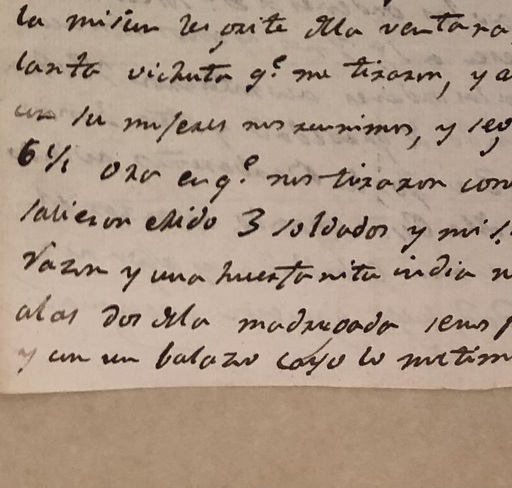 la mision les grite dela ventana
tanta vichuta q.e me tiraron, y a
con su mujeres nos reunimos, y seg
6½ Ora en q.e nos tiraron con
salieron erido 3 soldados y mi
razon y una huerfanita india
alas dos dela madrugada
y con un balazo cayo lo metim